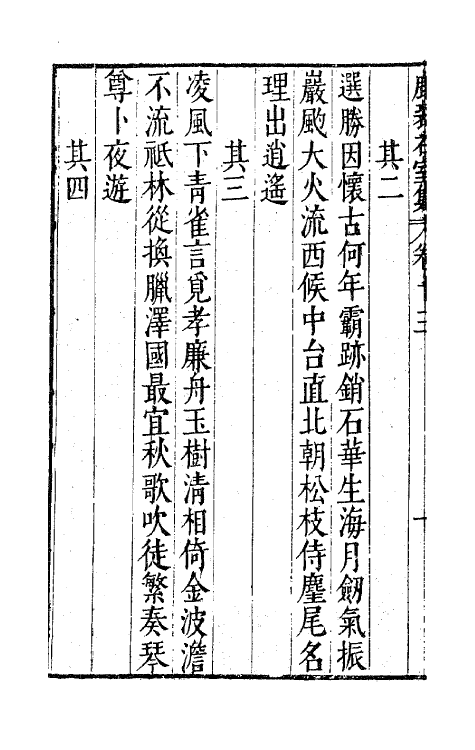 其二
選勝因懷古何年霸跡銷石華生海月劒氣振
巖颷大火流西候中台直北朝松枝侍麈尾名
理出逍遙
其三
凌風下青雀言覓孝廉舟玉樹清相倚金波澹
不流祗林從換臘澤國最宜秋歌吹徒繁奏琴
尊卜夜遊
其四